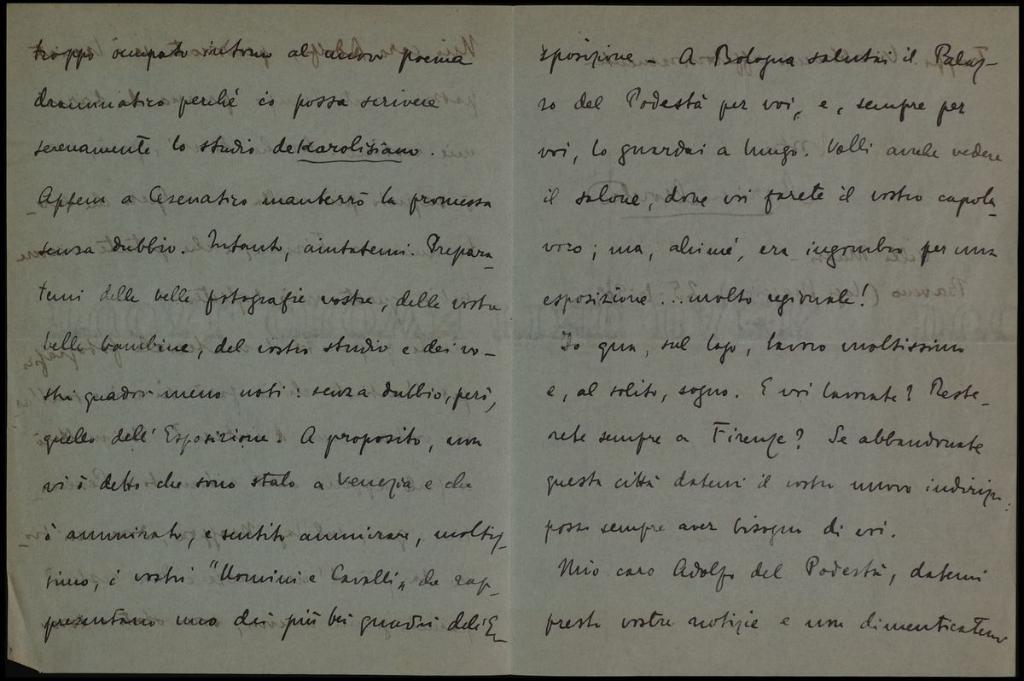 troppo occupato intorno al nuovo poema
drammatico perché io possa scrivere
serenamente lo studio deKarolisiano.
Appena a Cesenatico manterrò la promessa
senza dubbio. Intanto, aiutatemi. Prepara-
temi delle belle fotografie vostre, delle vostre
belle bambine, del vostro studio e dei vo-
stri quadri meno noti: senza dubbio, però,
quello dell'Esposizione. A proposito, non
vi ò detto che sono stato a Venezia e che
ò ammirato, e sentito ammirare, moltis-
simo, i vostri "Uomini e Cavalli„ che rap-
presentano uno dei più bei quadri dell'E-
sposizione - A Bologna salutai il Palaz-
zo del Podestà per voi, e, sempre per
voi, lo guardai a lungo. Volli anche vedere
il salone, dove voi farete il vostro capola-
voro; ma, ahimé, era ingombro per una
esposizione ... molto regionale!
Io qua, sul lago, lavoro moltissimo
e, al solito, sogno. E voi lavorate? Reste-
rete sempre a Firenze? Se abbandonate
questa città datemi il vostro nuovo indirizzo:
posso sempre aver bisogno di voi.
Mio caro Adolfo del Podestà, datemi
presto vostre notizie e non dimenticatemi